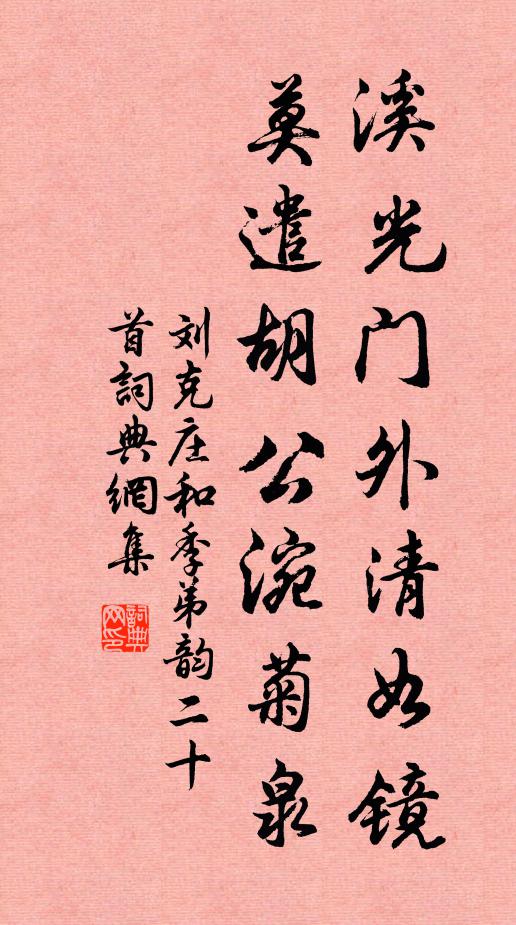 溪光门外清如镜
莫遣胡公浣菊泉
刘克庄和季弟韵二十
首詞典網集
詞典
网印